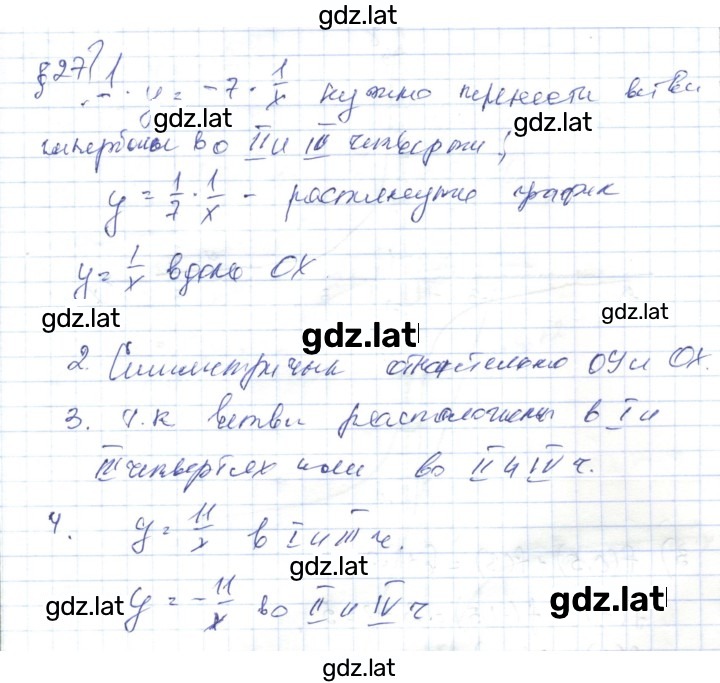 gdz.lat
§27?
1. y = -7 · 1/x нужно перенести ветви
gdz.lat
gdz.lat
гиперболы во II и IV четверти;
y = 1/7 · 1/x - растянутие график
y = 1/x вдоль OX
gdz.lat
gdz.lat
gdz.lat
2. Симметричны относительно OY и OX.
3. т.к ветви расположены в I и
III четвертях или во II и IV ч.
4. y = 11/x в I и III ч.
gdz.lat
gdz.lat
y = -11/x во II и IV ч.
gdz.lat
gdz.lat